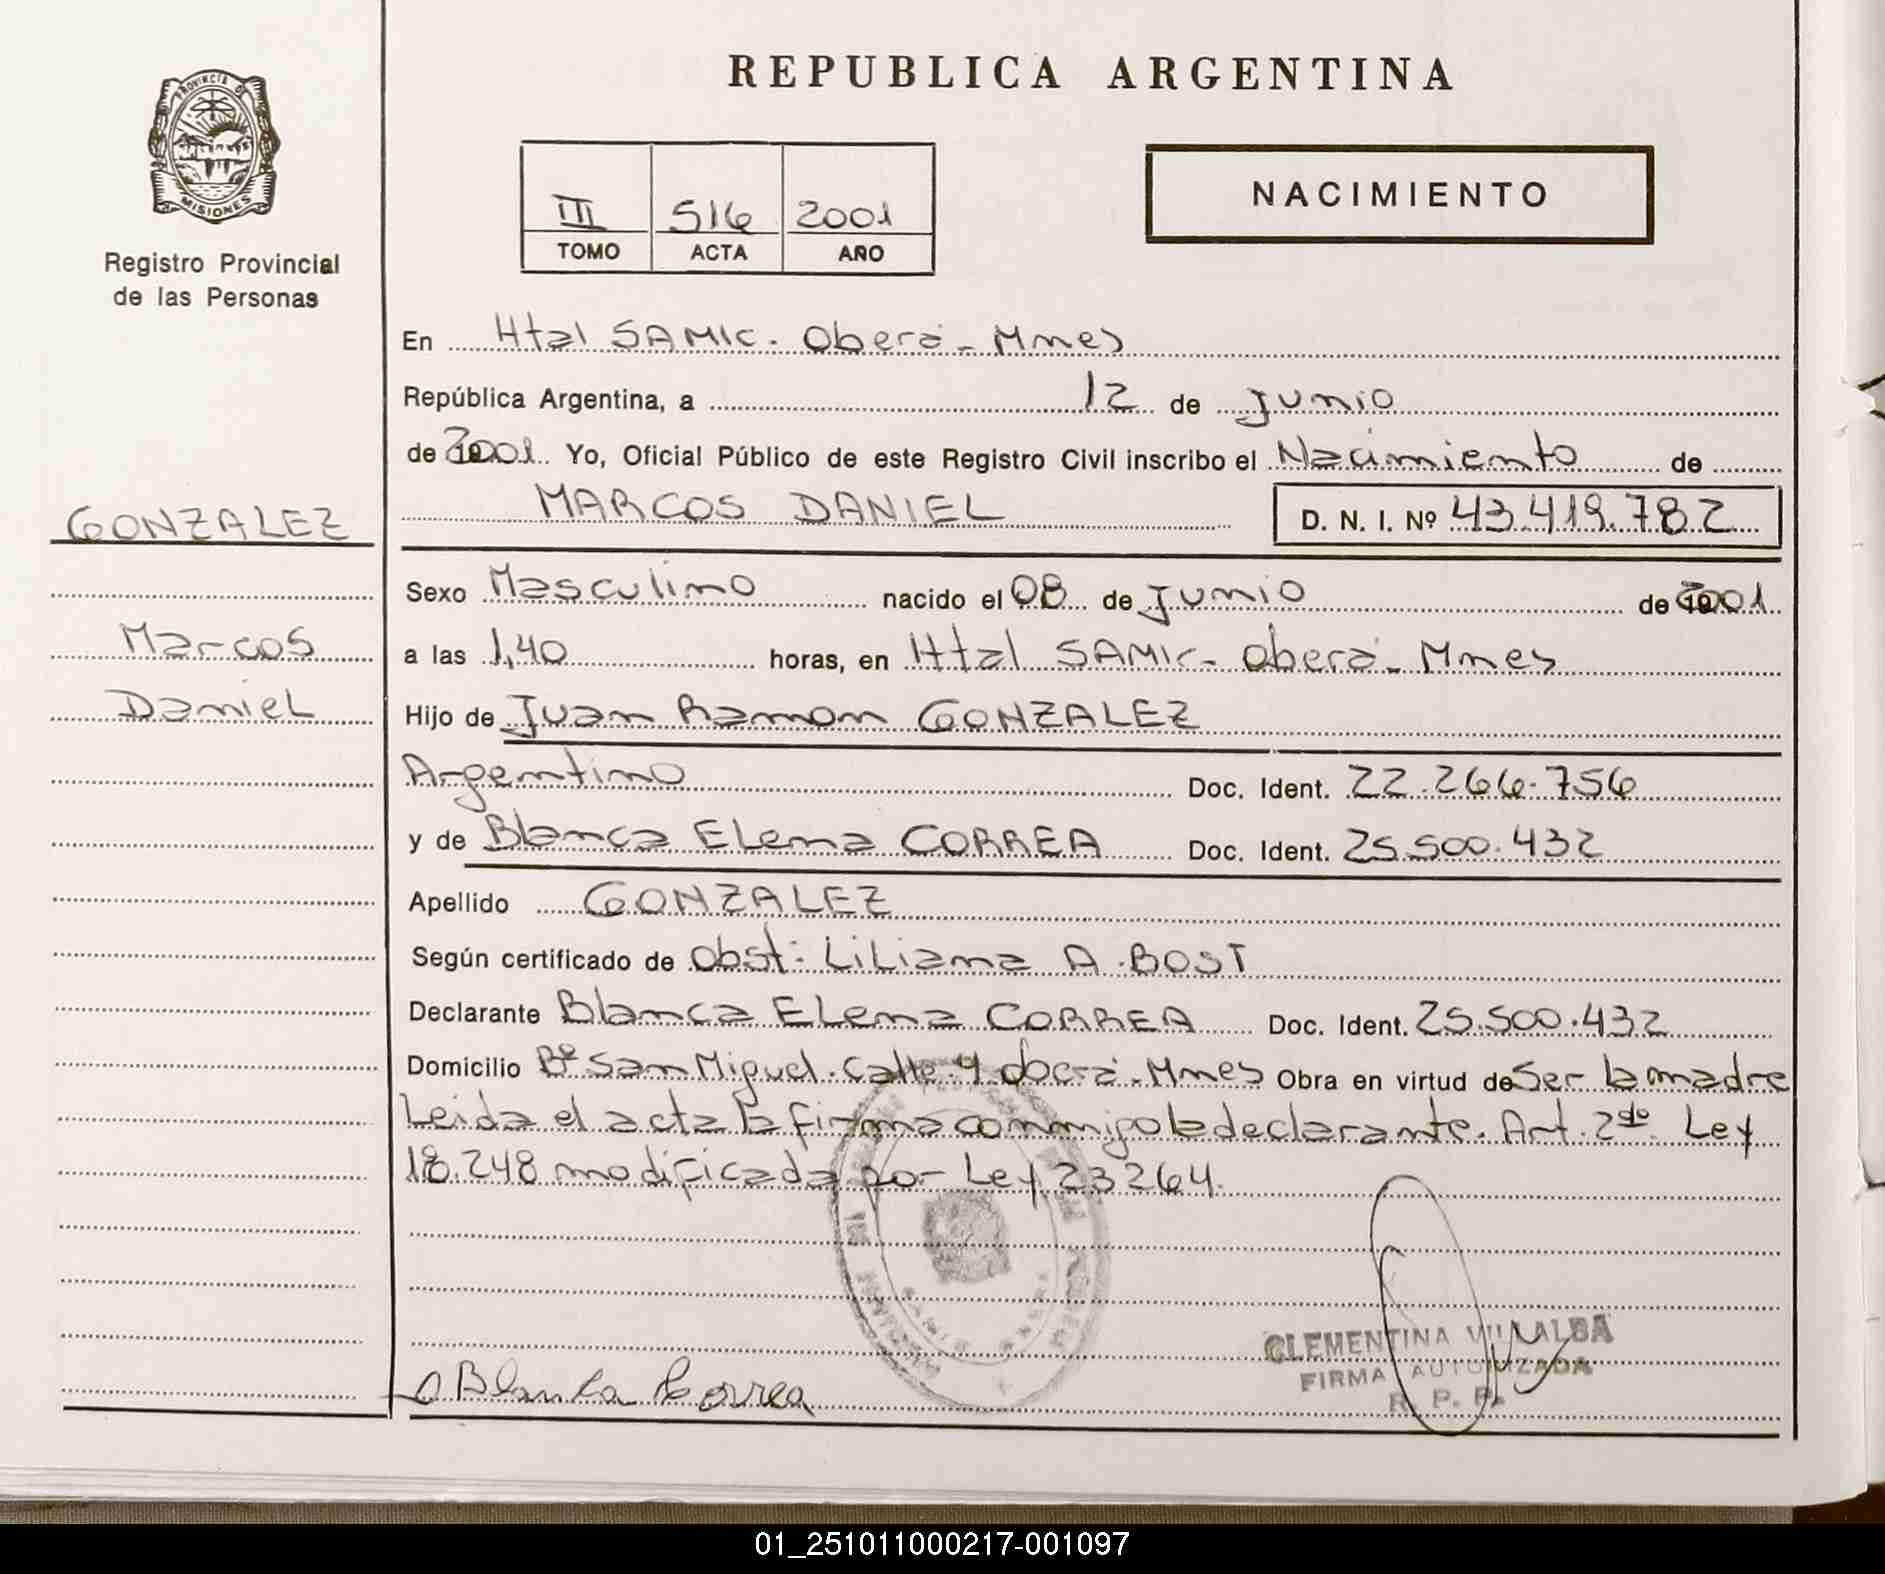 REPUBLICA ARGENTINA
PROVINCIA DE
MISIONES
Registro Provincial
de las Personas
III 516 2001
TOMO ACTA AÑO
NACIMIENTO
En Htal SAMIC. Oberá - Mnes
República Argentina, a 12 de Junio
de 2001. Yo, Oficial Público de este Registro Civil inscribo el Nacimiento de
MARCOS DANIEL D. N. I. Nº 43.419.782
GONZALEZ
Marcos
Daniel
Sexo Masculino nacido el 08 de Junio de 2001
a las 1,40 horas, en Htal SAMIC - Oberá - Mnes
Hijo de Juan Ramon GONZALEZ
Argentino Doc. Ident. 22.266.756
y de Blanca Elena CORREA Doc. Ident. 25.500.432
Apellido GONZALEZ
Según certificado de Obst: Liliana A. BOST
Declarante Blanca Elena CORREA Doc. Ident. 25.500.432
Domicilio Bº San Miguel. Calle 4 Oberá - Mnes Obra en virtud de Ser la madre
Leida el acta la firma conmigo la declarante. Art. 2do Ley
18.248 modificada por Ley 23264.
CLEMENTINA VILLALBA
FIRMA AUTORIZADA
R. P. P.
Blanca Correa
01_251011000217-001097